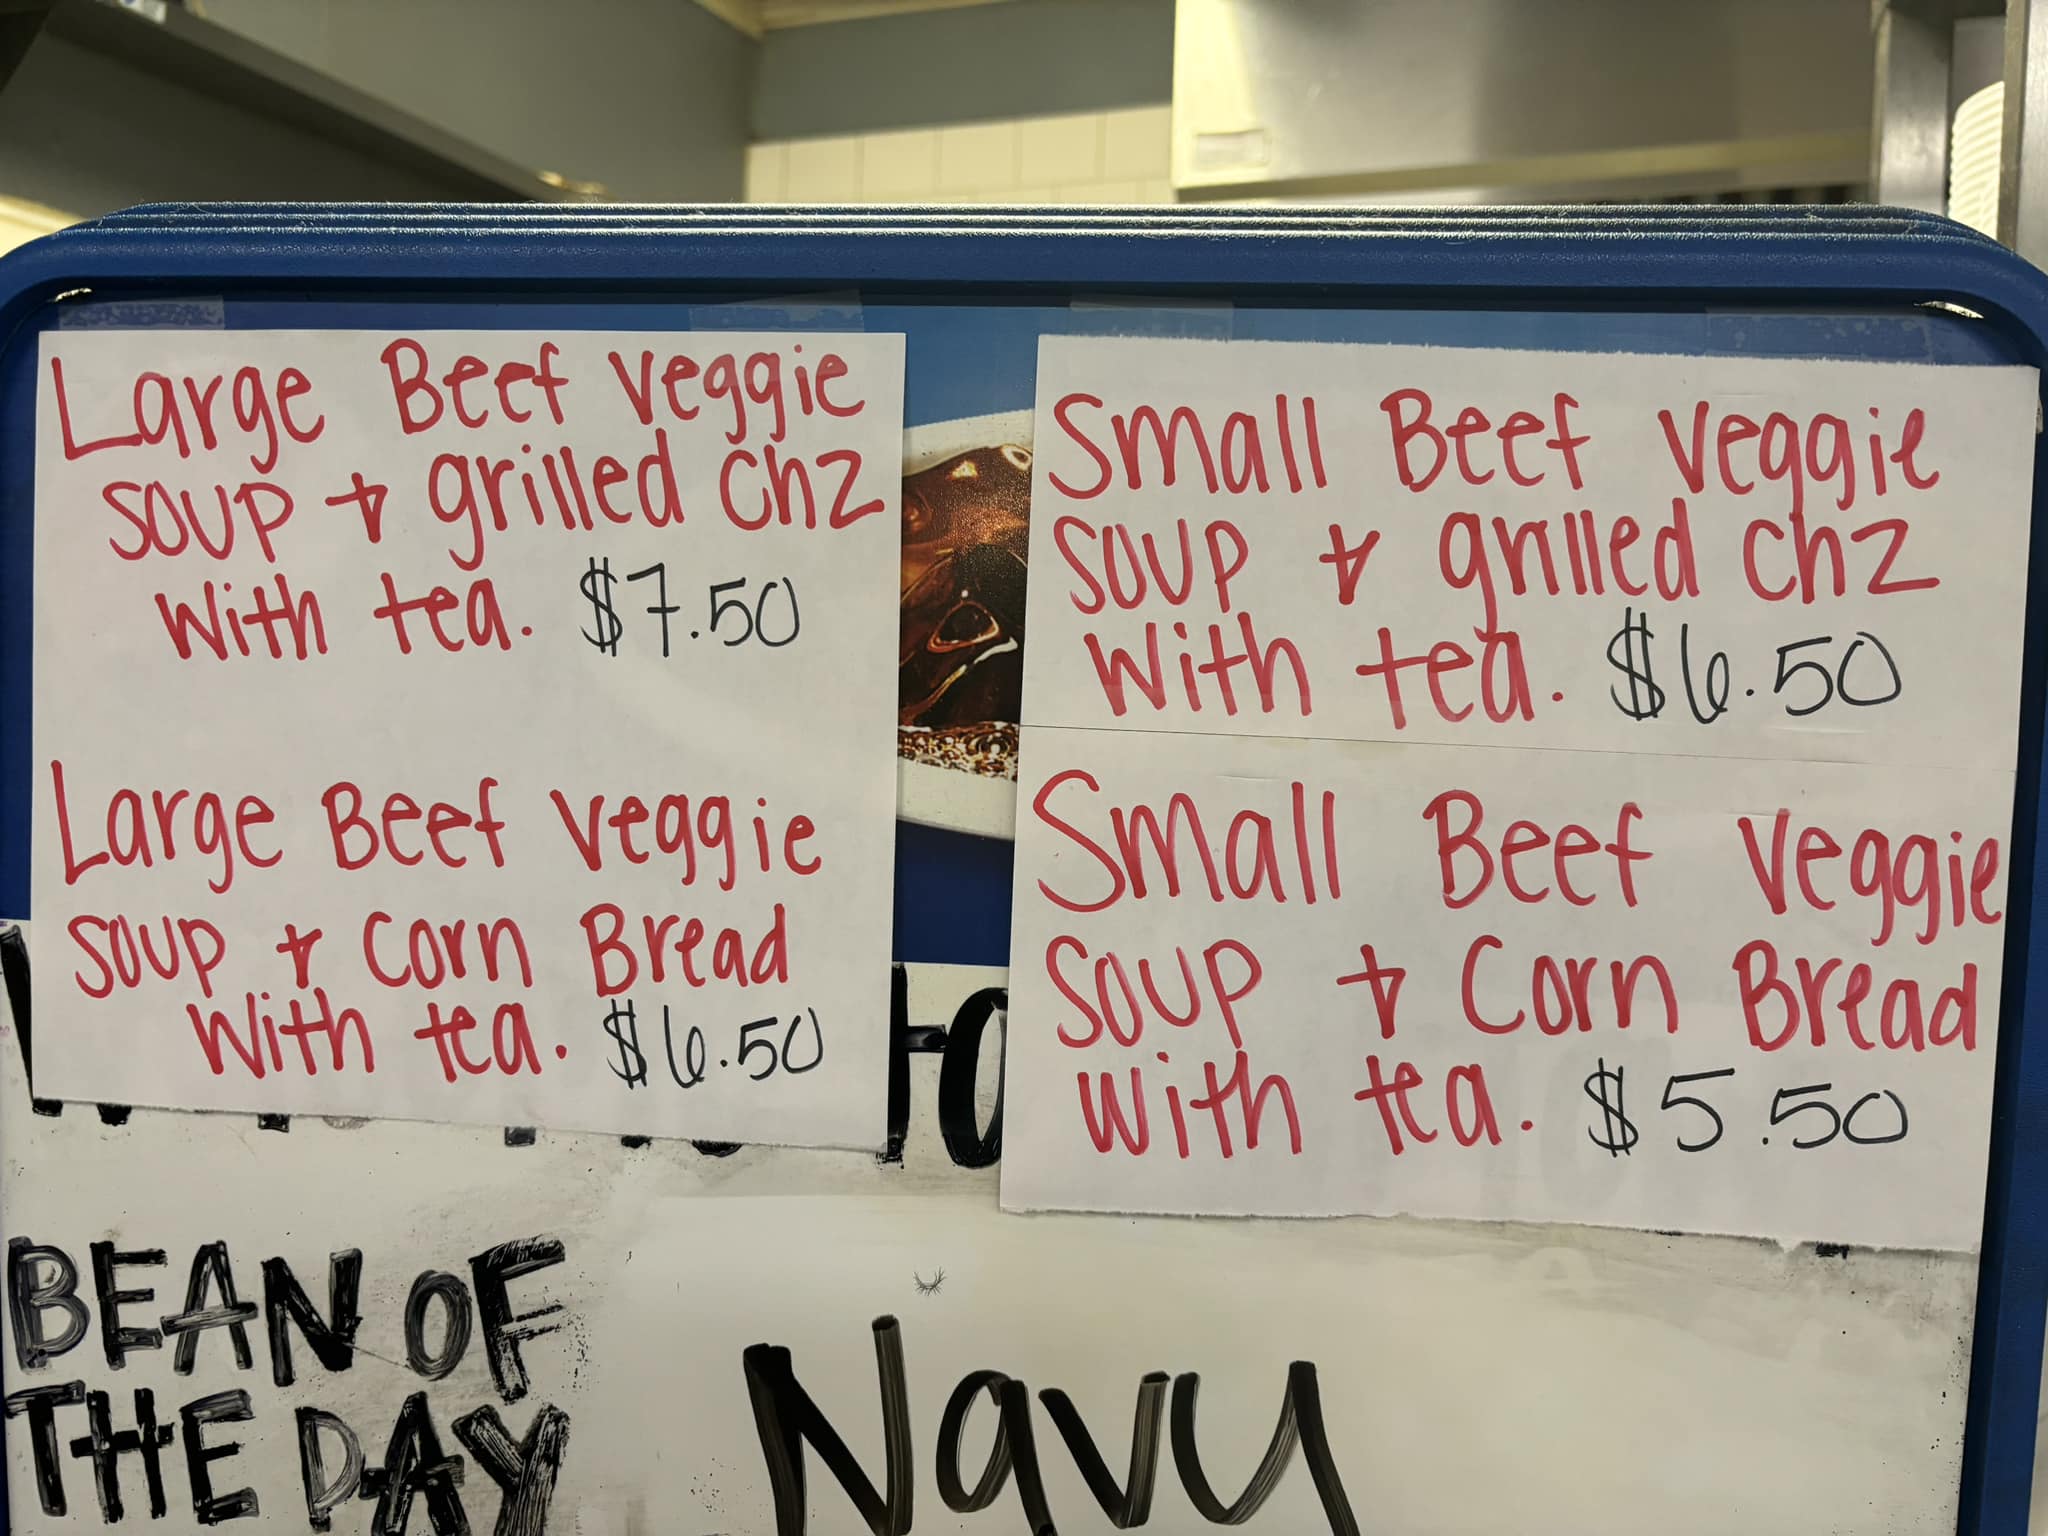 Large Beef Veggie
soup + grilled chz
with tea. $7.50
Large Beef Veggie
soup + Corn Bread
with tea. $6.50
Small Beef Veggie
soup + grilled chz
with tea. $6.50
Small Beef Veggie
soup + Corn Bread
with tea. $5.50
BEAN OF
THE DAY
Navy